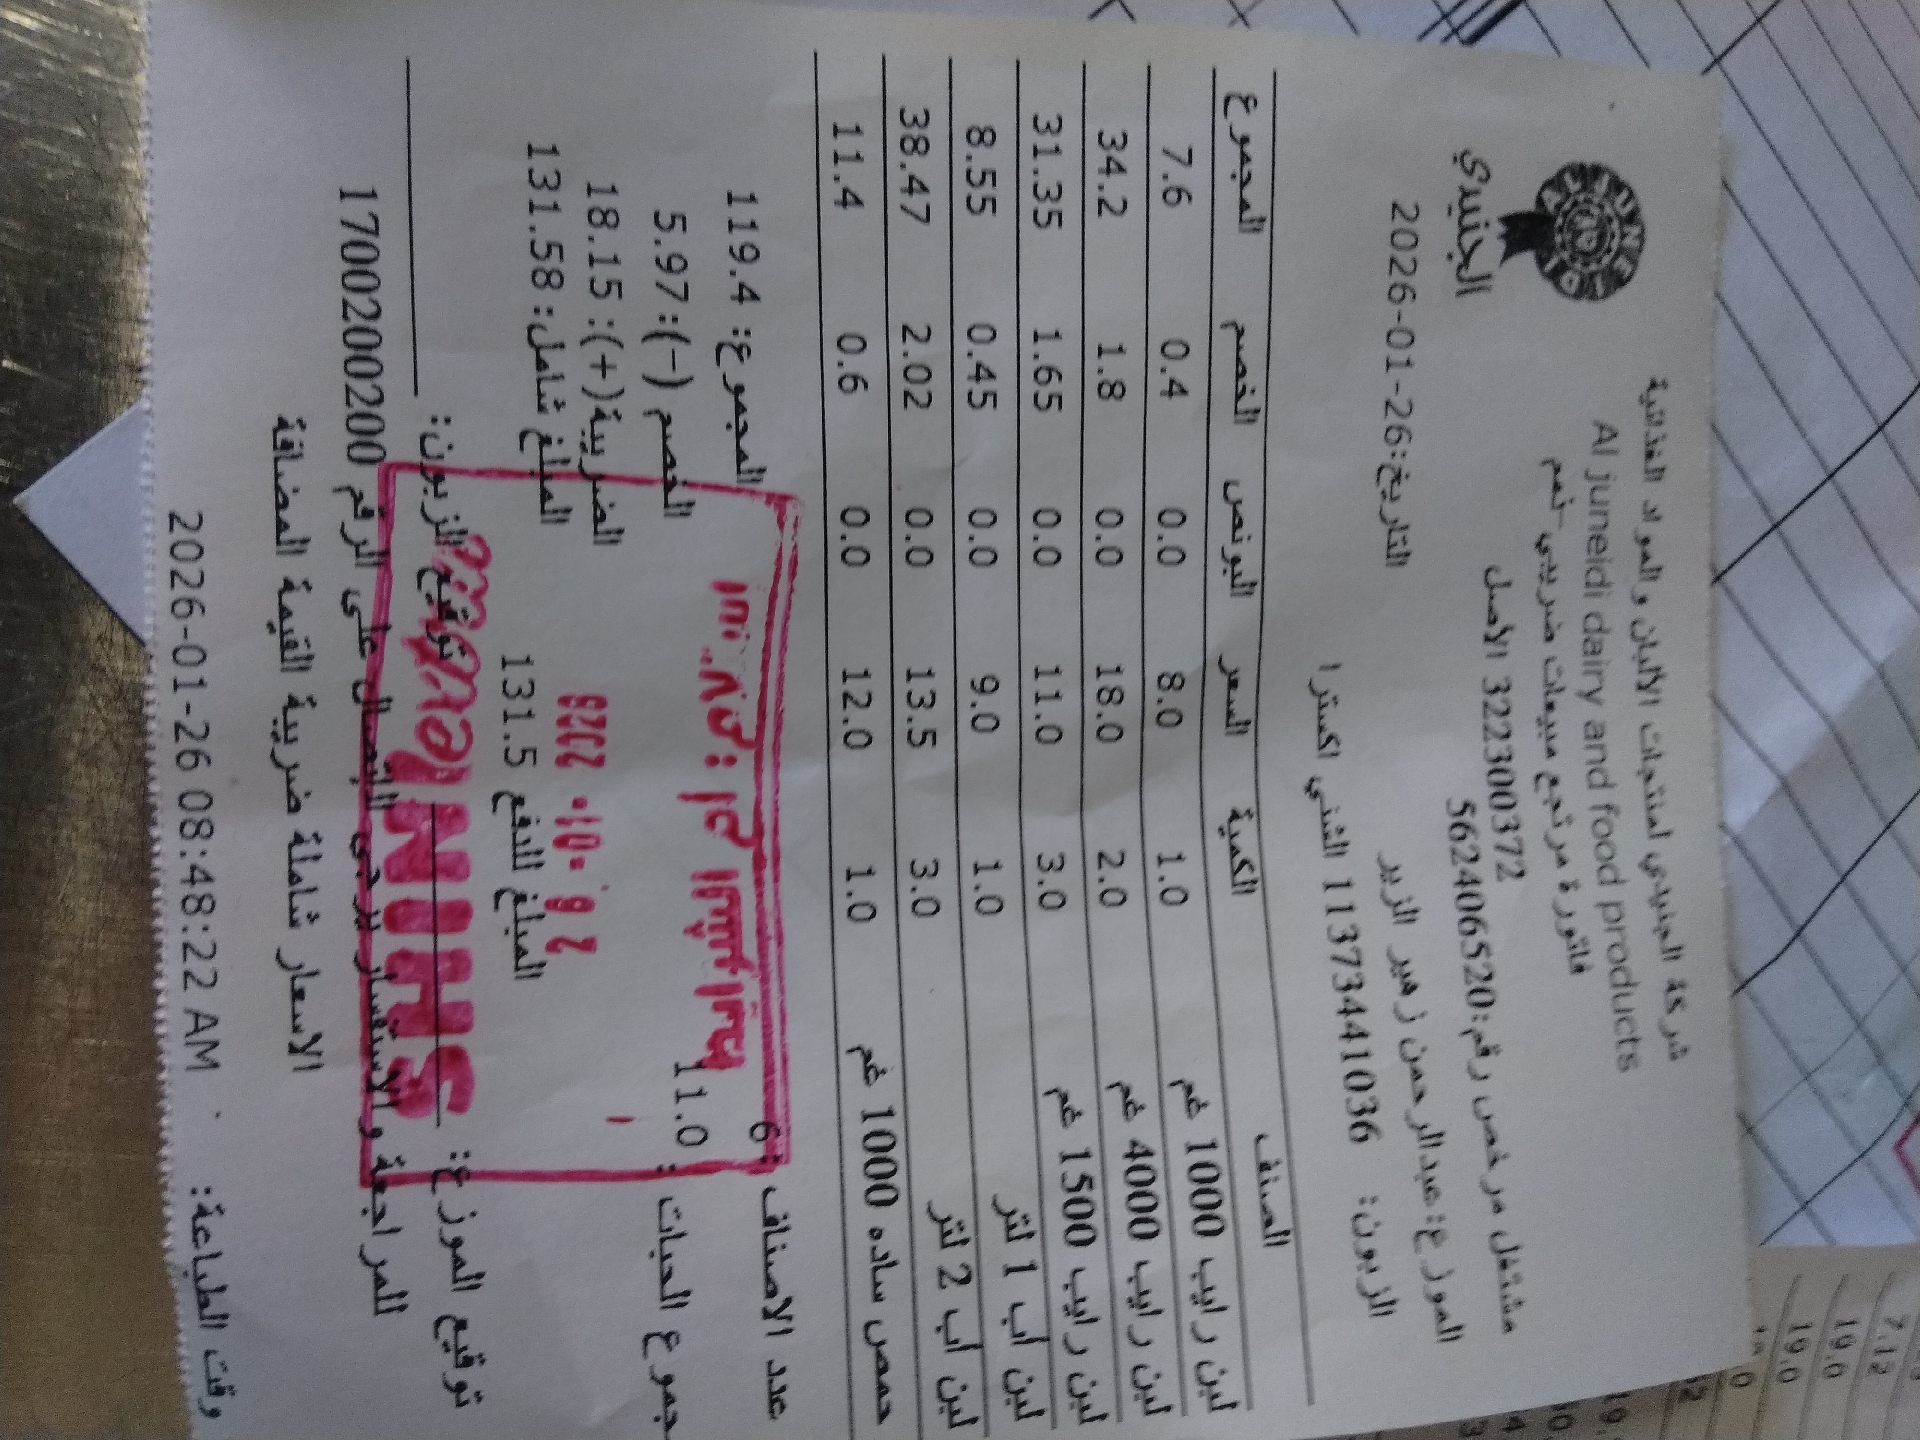 شركة الجنيدي لمنتجات الألبان والمواد الغذائية
Al juneidi dairy and food products
فاتورة مرتجع مبيعات ضريبي-نعم
322300372 الأصل
AL JUNEIDI
الجنيدي
مشتغل مرخص رقم:562406520
الموزع:عبدالرحمن زهير الزير
التاريخ:2026-01-26
الزبون: 11373441036 الشني اكسترا 1
الصنف الكمية السعر البونص الخصم المجموع
لبن رايب 1000 غم 1.0 8.0 0.0 0.4 7.6
لبن رايب 4000 غم 2.0 18.0 0.0 1.8 34.2
لبن رايب 1500 غم 3.0 11.0 0.0 1.65 31.35
لبن اب 1 لتر 1.0 9.0 0.0 0.45 8.55
لبن اب 2 لتر 3.0 13.5 0.0 2.02 38.47
حمص ساده 1000 غم 1.0 12.0 0.0 0.6 11.4
عدد الاصناف :6
المجموع: 119.4
جموع الحبات : 11.0
الخصم (-): 5.97
الضريبة(+): 18.15
المبلغ شامل: 131.58
المبلغ للدفع 131.5
توقيع الموزع:
توقيع الزبون:
للمراجعة والاستفسار يرجى الاتصال على الرقم 1700200200
الاسعار شاملة ضريبة القيمة المضافة
وقت الطباعة: 2026-01-26 08:48:22 AM